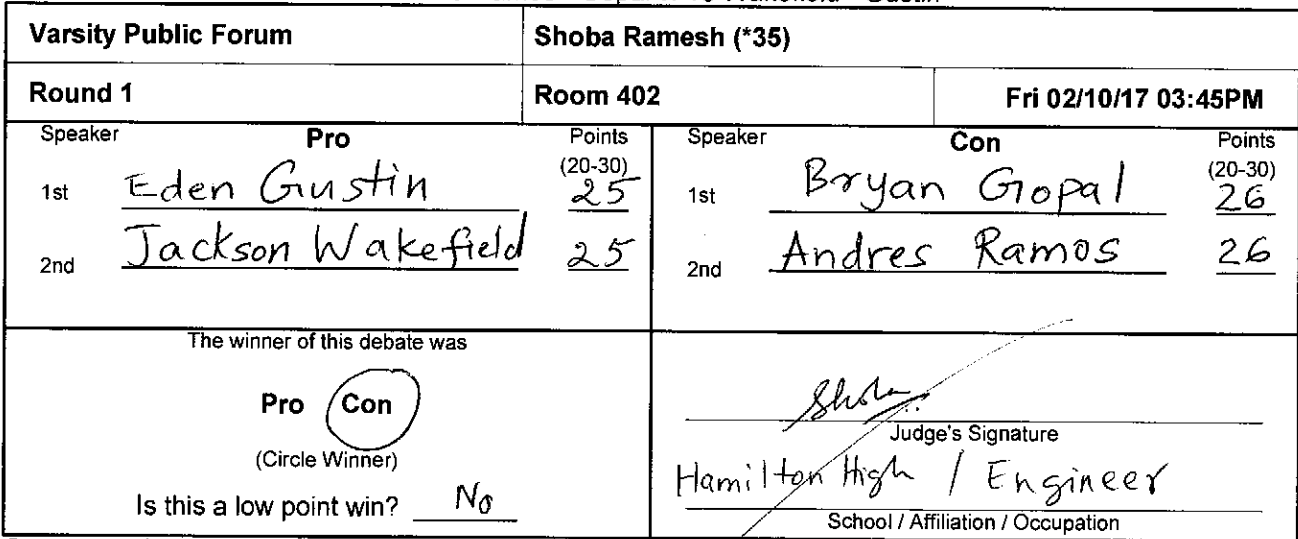 Wakefield
Varsity Public Forum
Shoba Ramesh (*35)
Round 1
Room 402
Fri 02/10/17 03:45PM
Speaker Pro Points
(20-30)
1st Eden Gustin 25
2nd Jackson Wakefield 25
Speaker Con Points
(20-30)
1st Bryan Gopal 26
2nd Andres Ramos 26
The winner of this debate was
Pro Con
(Circle Winner)
Is this a low point win? No
Shoba
Judge's Signature
Hamilton High / Engineer
School / Affiliation / Occupation